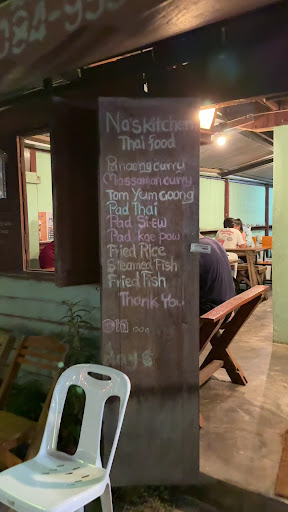 084-95
Na's Kitchen
Thai food
Panaeng curry
Massaman curry
Tom Yum Goong
Pad Thai
Pad Si-Ew
Pad kae pow
Fried Rice
Steamed Fish
Fried Fish
Thank You